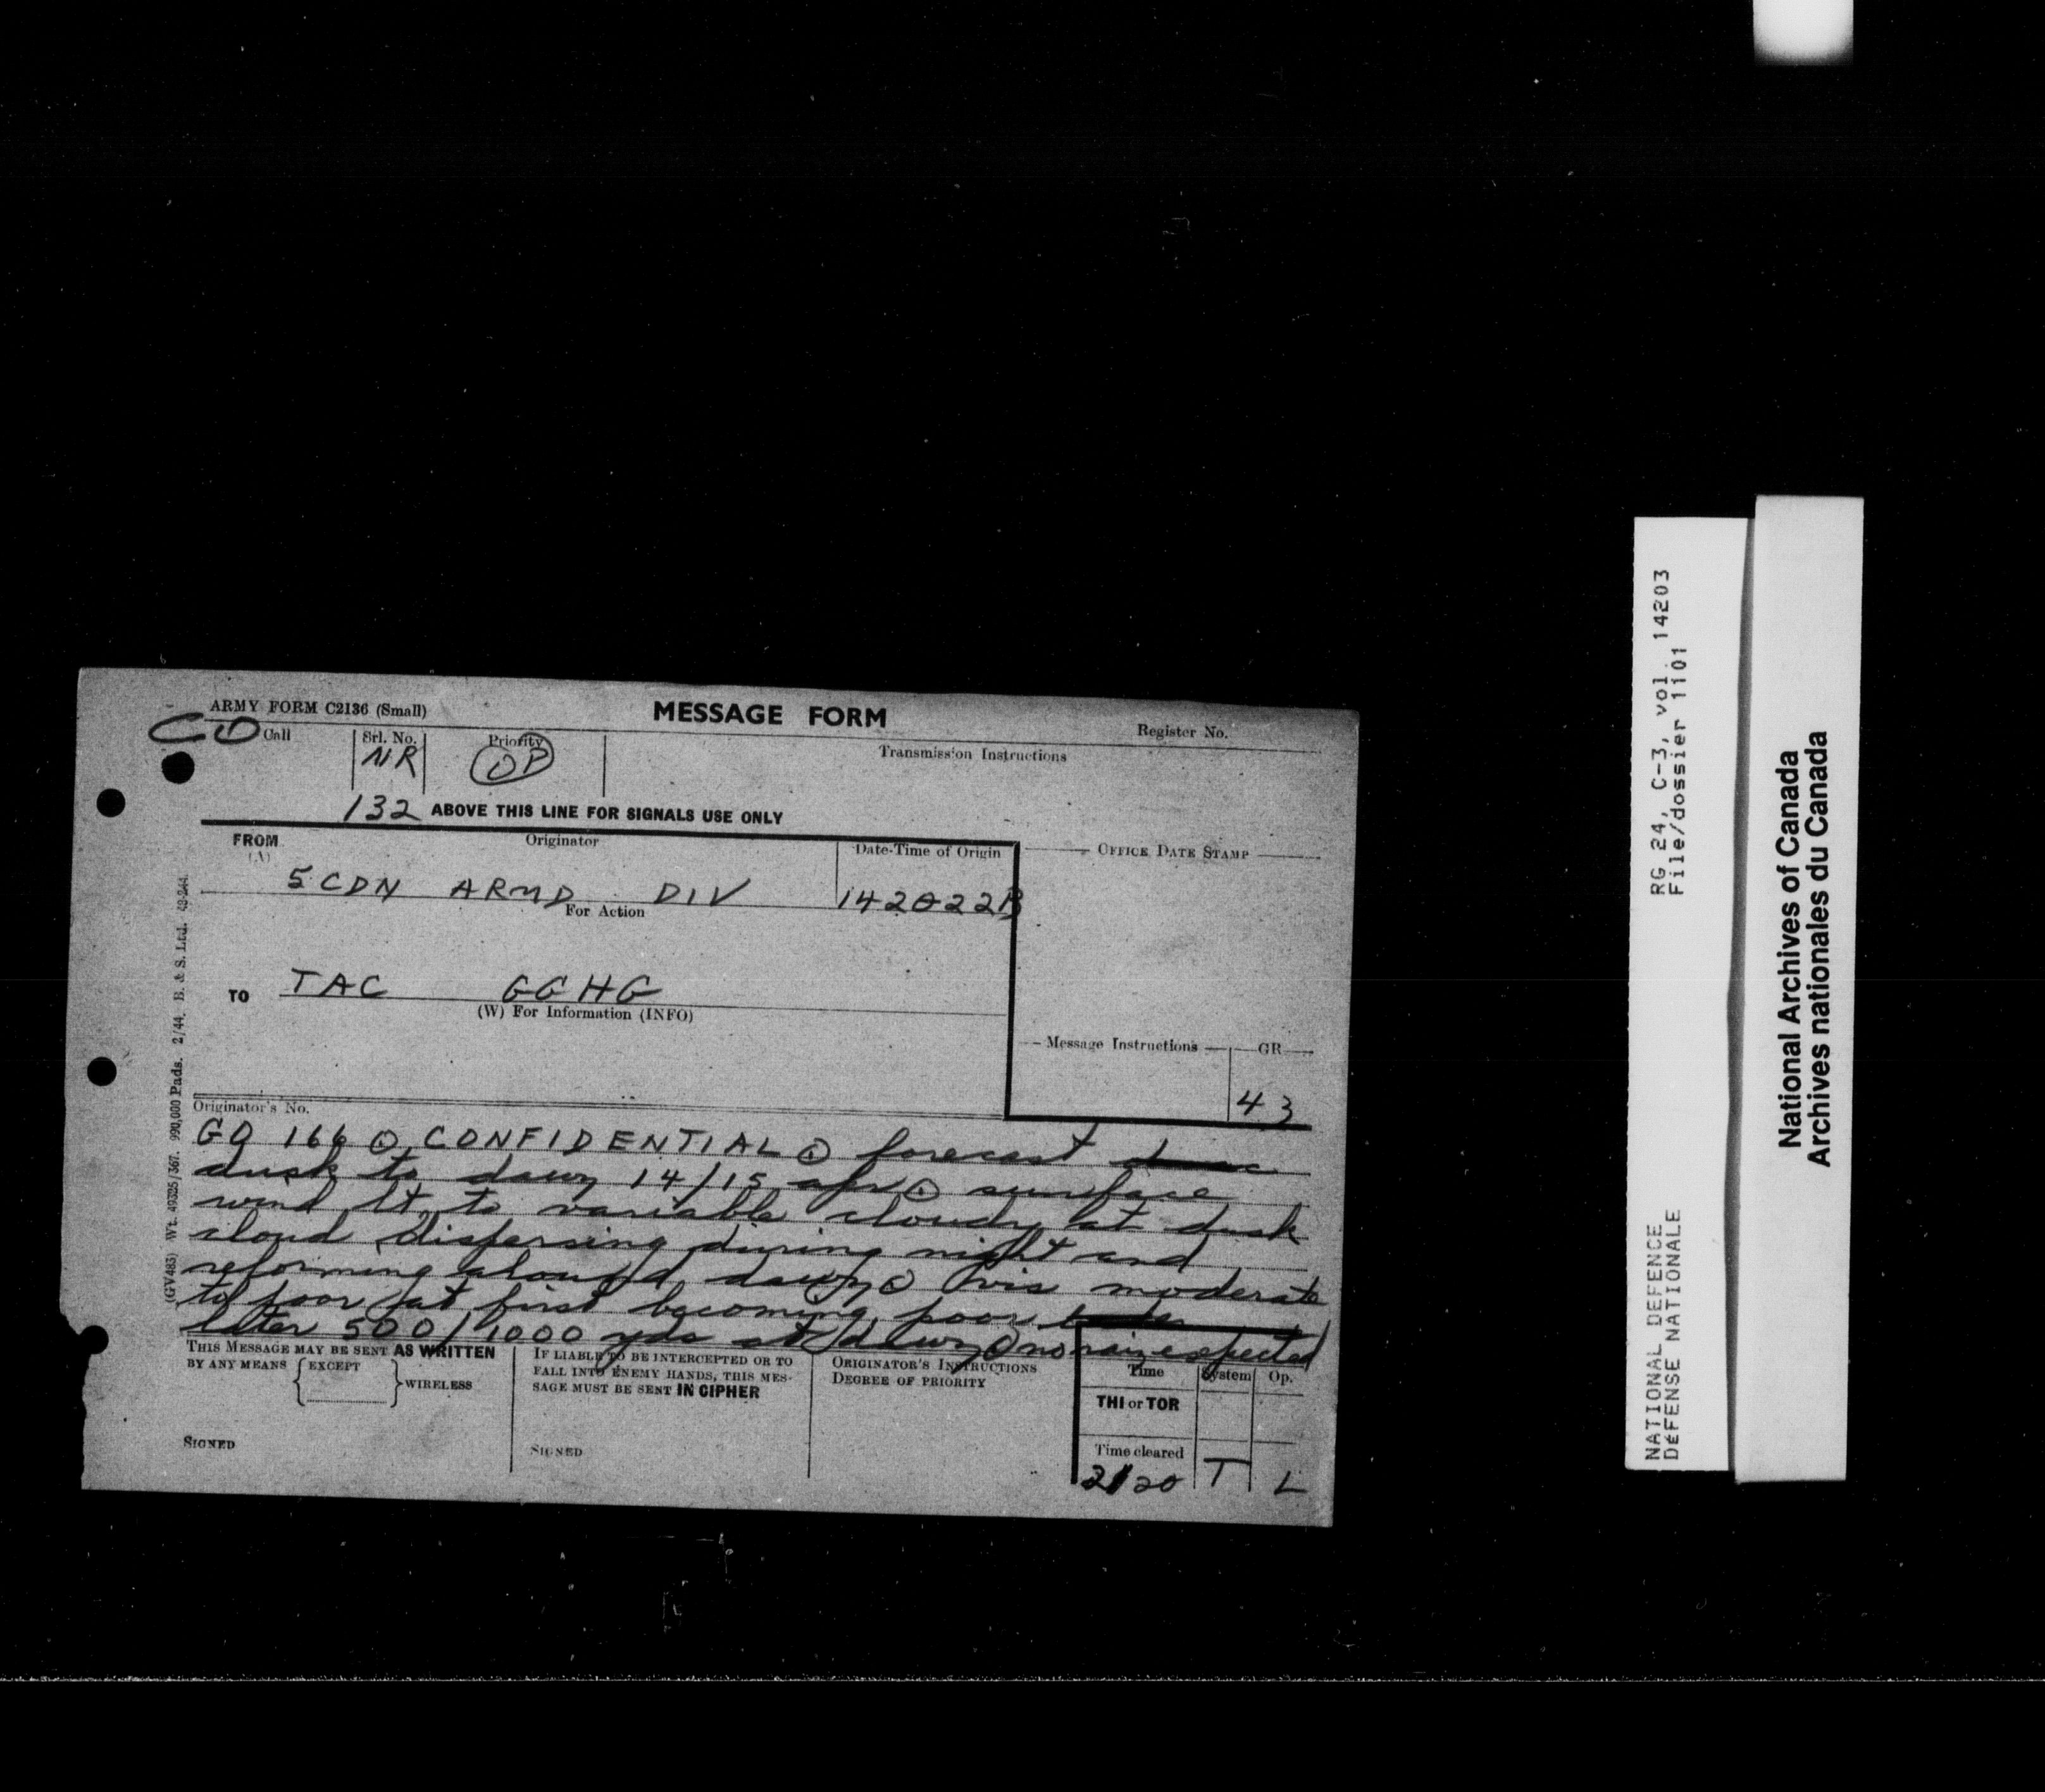 ARMY FORM C2136 (Small)
MESSAGE FORM
Register No.
CO
Call
Srl. No.
NR
Priority
OP
Transmission Instructions
132 ABOVE THIS LINE FOR SIGNALS USE ONLY
FROM
(A)
Originator
Date-Time of Origin
OFFICE DATE STAMP
5 CDN ARMD DIV
142022B
For Action
TO
TAC GGHG
(W) For Information (INFO)
Message Instructions
GR
43
Originator's No.
GO 166 CONFIDENTIAL forecast
dusk to dawn 14/15 apr surface
wind lt to variable cloudy at dusk
cloud dispersing during night and
reforming around dawn vis moderate
to poor at first becoming poor
later 500/1000 yds at dawn no rain expected
THIS MESSAGE MAY BE SENT AS WRITTEN
BY ANY MEANS EXCEPT
WIRELESS
SIGNED
IF LIABLE TO BE INTERCEPTED OR TO
FALL INTO ENEMY HANDS, THIS MES-
SAGE MUST BE SENT IN CIPHER
SIGNED
ORIGINATOR'S INSTRUCTIONS
DEGREE OF PRIORITY
Time
System
Op.
THI or TOR
Time cleared
2120 T L
(GV483) Wt. 49325/367. 990,000 Pads. 2/44. B. & S. Ltd.
RG 24, C-3, vol. 14203
File/dossier 1101
NATIONAL DEFENCE
DÉFENSE NATIONALE
National Archives of Canada
Archives nationales du Canada